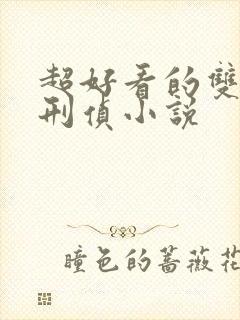 超好看的雙
刑偵小説
瞳色的薔薇花